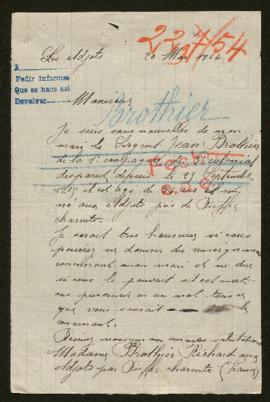 223/154
Les Adjots 20 Mai 1916
A
Pedir informes
Que se hace así
Devolver
Monsieur
Brothier
Je suis sans nouvelles de mon
mari le Sergent Jean Brothier
de la 1e compagnie
disparut depuis le 25 Septembre
1915 il est âgé de
né aux Adjots près de Ruffec
charente.
Je serait très heureuse si vous
pouviez me donner des renseignements
concernant mon mari et me dire
si vous le pouvait s'il est mort
ou prisonnier en un mot tous ce
que vous saurait
concernant.
Recevez monsieur mes sincères salutations
Madame Brothier Richard aux
Adjots par Ruffec charente (France)